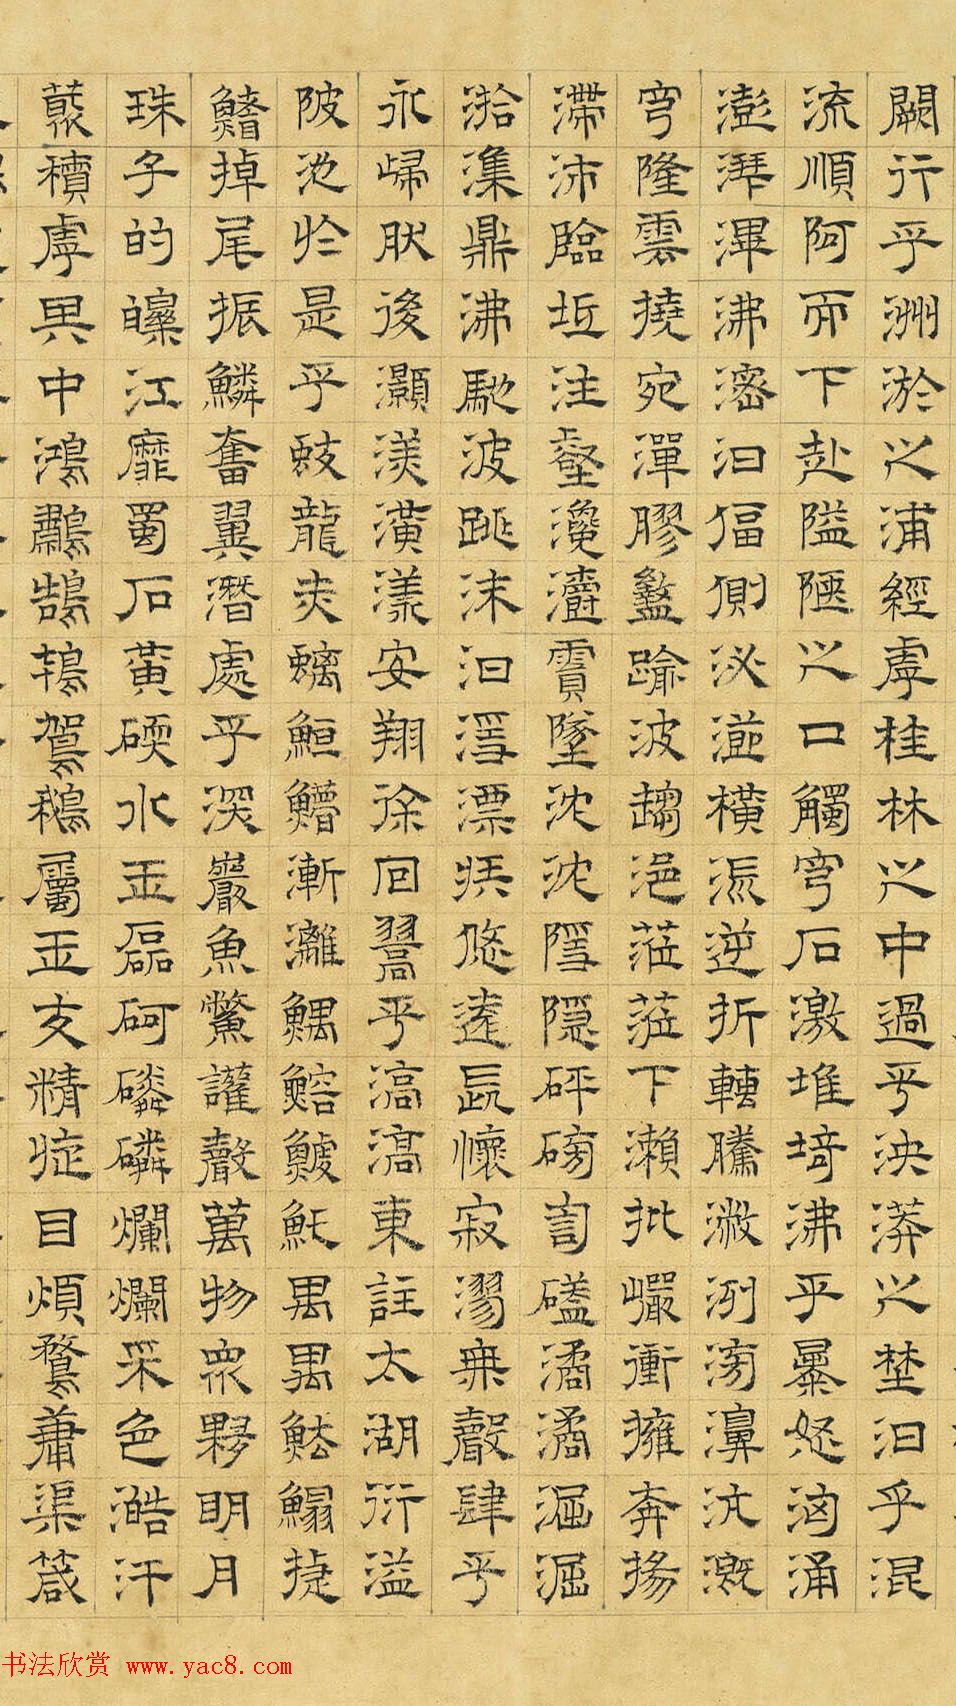 闕行乎洲淤之浦經虖桂林之中過乎泱漭之壄汩乎混
流順阿而下赴隘陿之口觸穹石激堆埼沸乎暴怒洶涌
澎湃滭沸滵汩偪側泌瀄橫流逆折轉騰潎洌滂濞沆溉
穹隆雲橈宛潬膠盭踰波趨浥蒞蒞下瀨批巖衝擁奔揚
滯沛臨坻注壑瀺灂霣墜沈沈隱隱砰磅訇磕潏潏淈淈
湁潗鼎沸馳波跳沫汩㴔漂疾悠遠長懷寂漻無聲肆乎
永歸然後灝溔潢漾安翔徐回翯乎滈滈東注太湖衍溢
陂池於是乎蛟龍赤螭䱭䲛漸離鰅鰫鰬魠禺禺魼鰨揵
鰭掉尾振鱗奮翼潛處乎深巖魚鱉讙聲萬物眾夥明月
珠子的皪江靡蜀石黃碝水玉磊砢磷磷爛爛采色澔汗
藂積虖其中鴻鷫鵠鴇鴐鵝屬玉交精旋目煩鶩庸渠箴